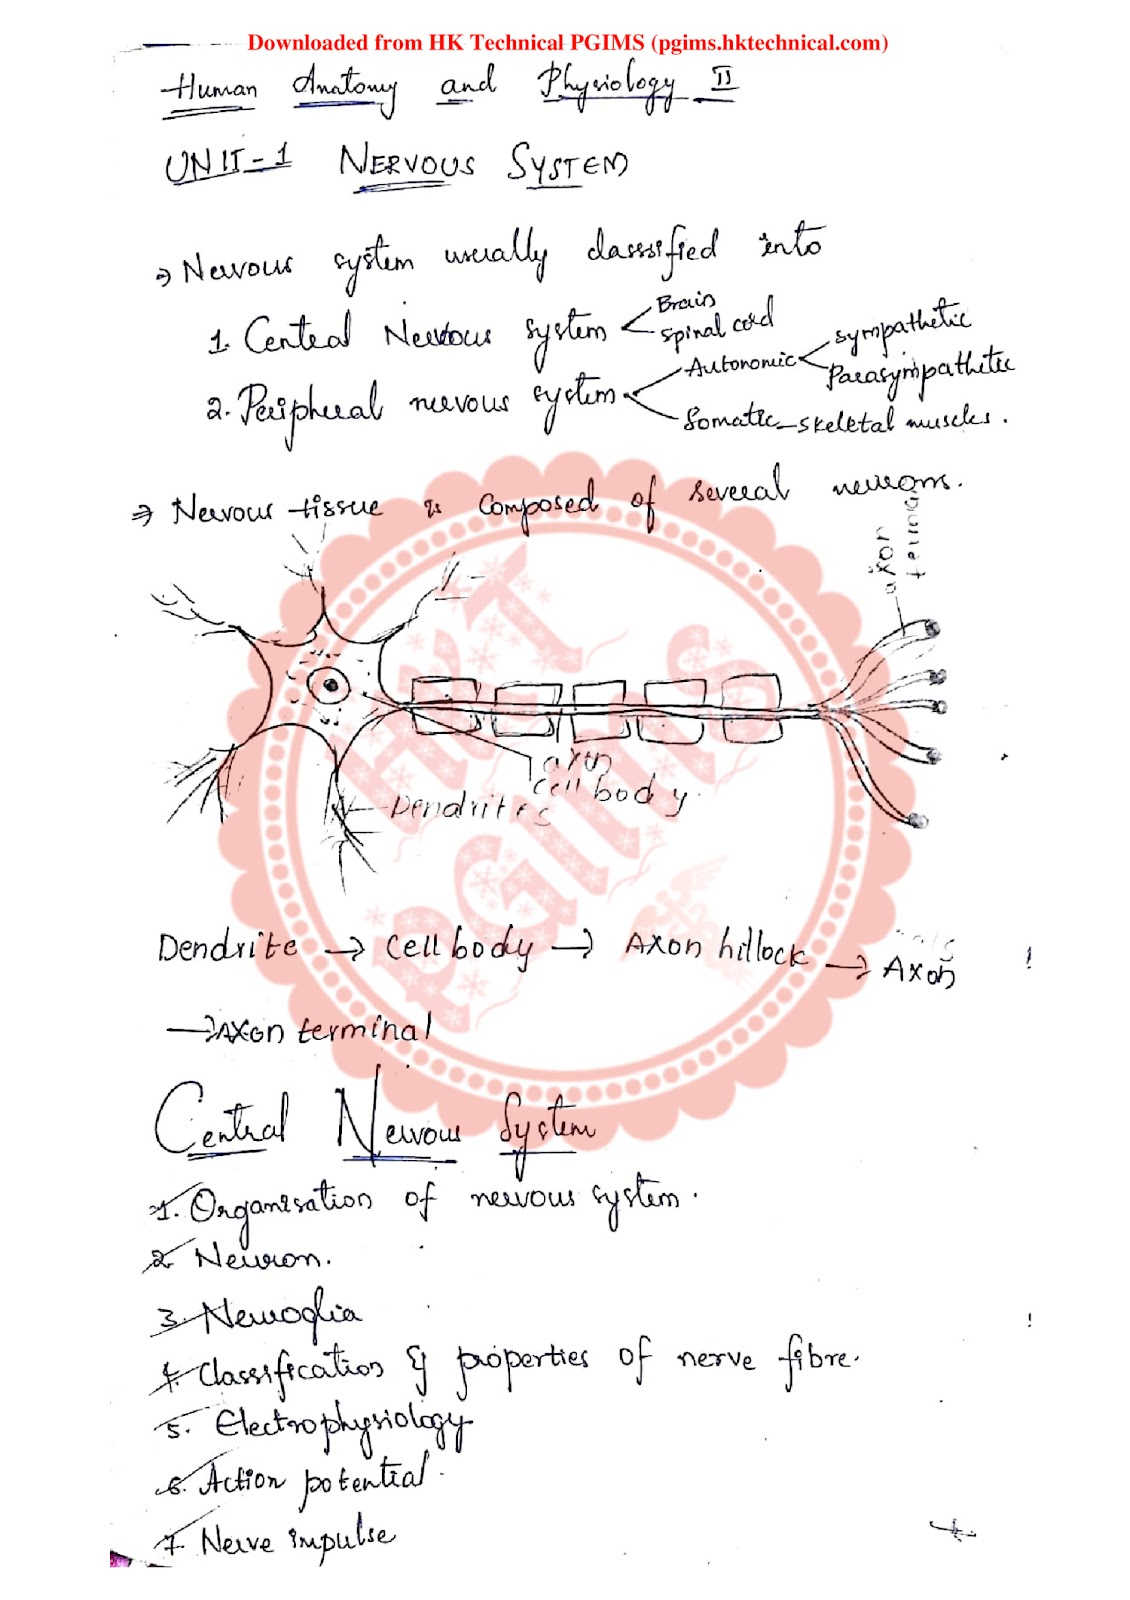 Downloaded from HK Technical PGIMS (pgims.hktechnical.com)
Human Anatomy and Physiology II
UNIT-1 NERVOUS SYSTEM
⇒ Nervous system usually classsified into
1. Central Nervous system < Brain
Spinal cord
2. Peripheral nervous system < Autonomic < sympathetic
Parasympathetic
Somatic - skeletal muscles.
⇒ Nervous tissue is composed of several neurons.
axon
termina
axon
cell body
Dendrites
HKT
PGIMS
PGIMS
Dendrite → cell body → Axon hillock → Axon
→ Axon terminal
Central Nervous System
1. Organisation of nervous system.
2. Neuron.
3. Neuroglia
4. Classification & properties of nerve fibre.
5. Electrophysiology
6. Action potential.
7. Nerve impulse